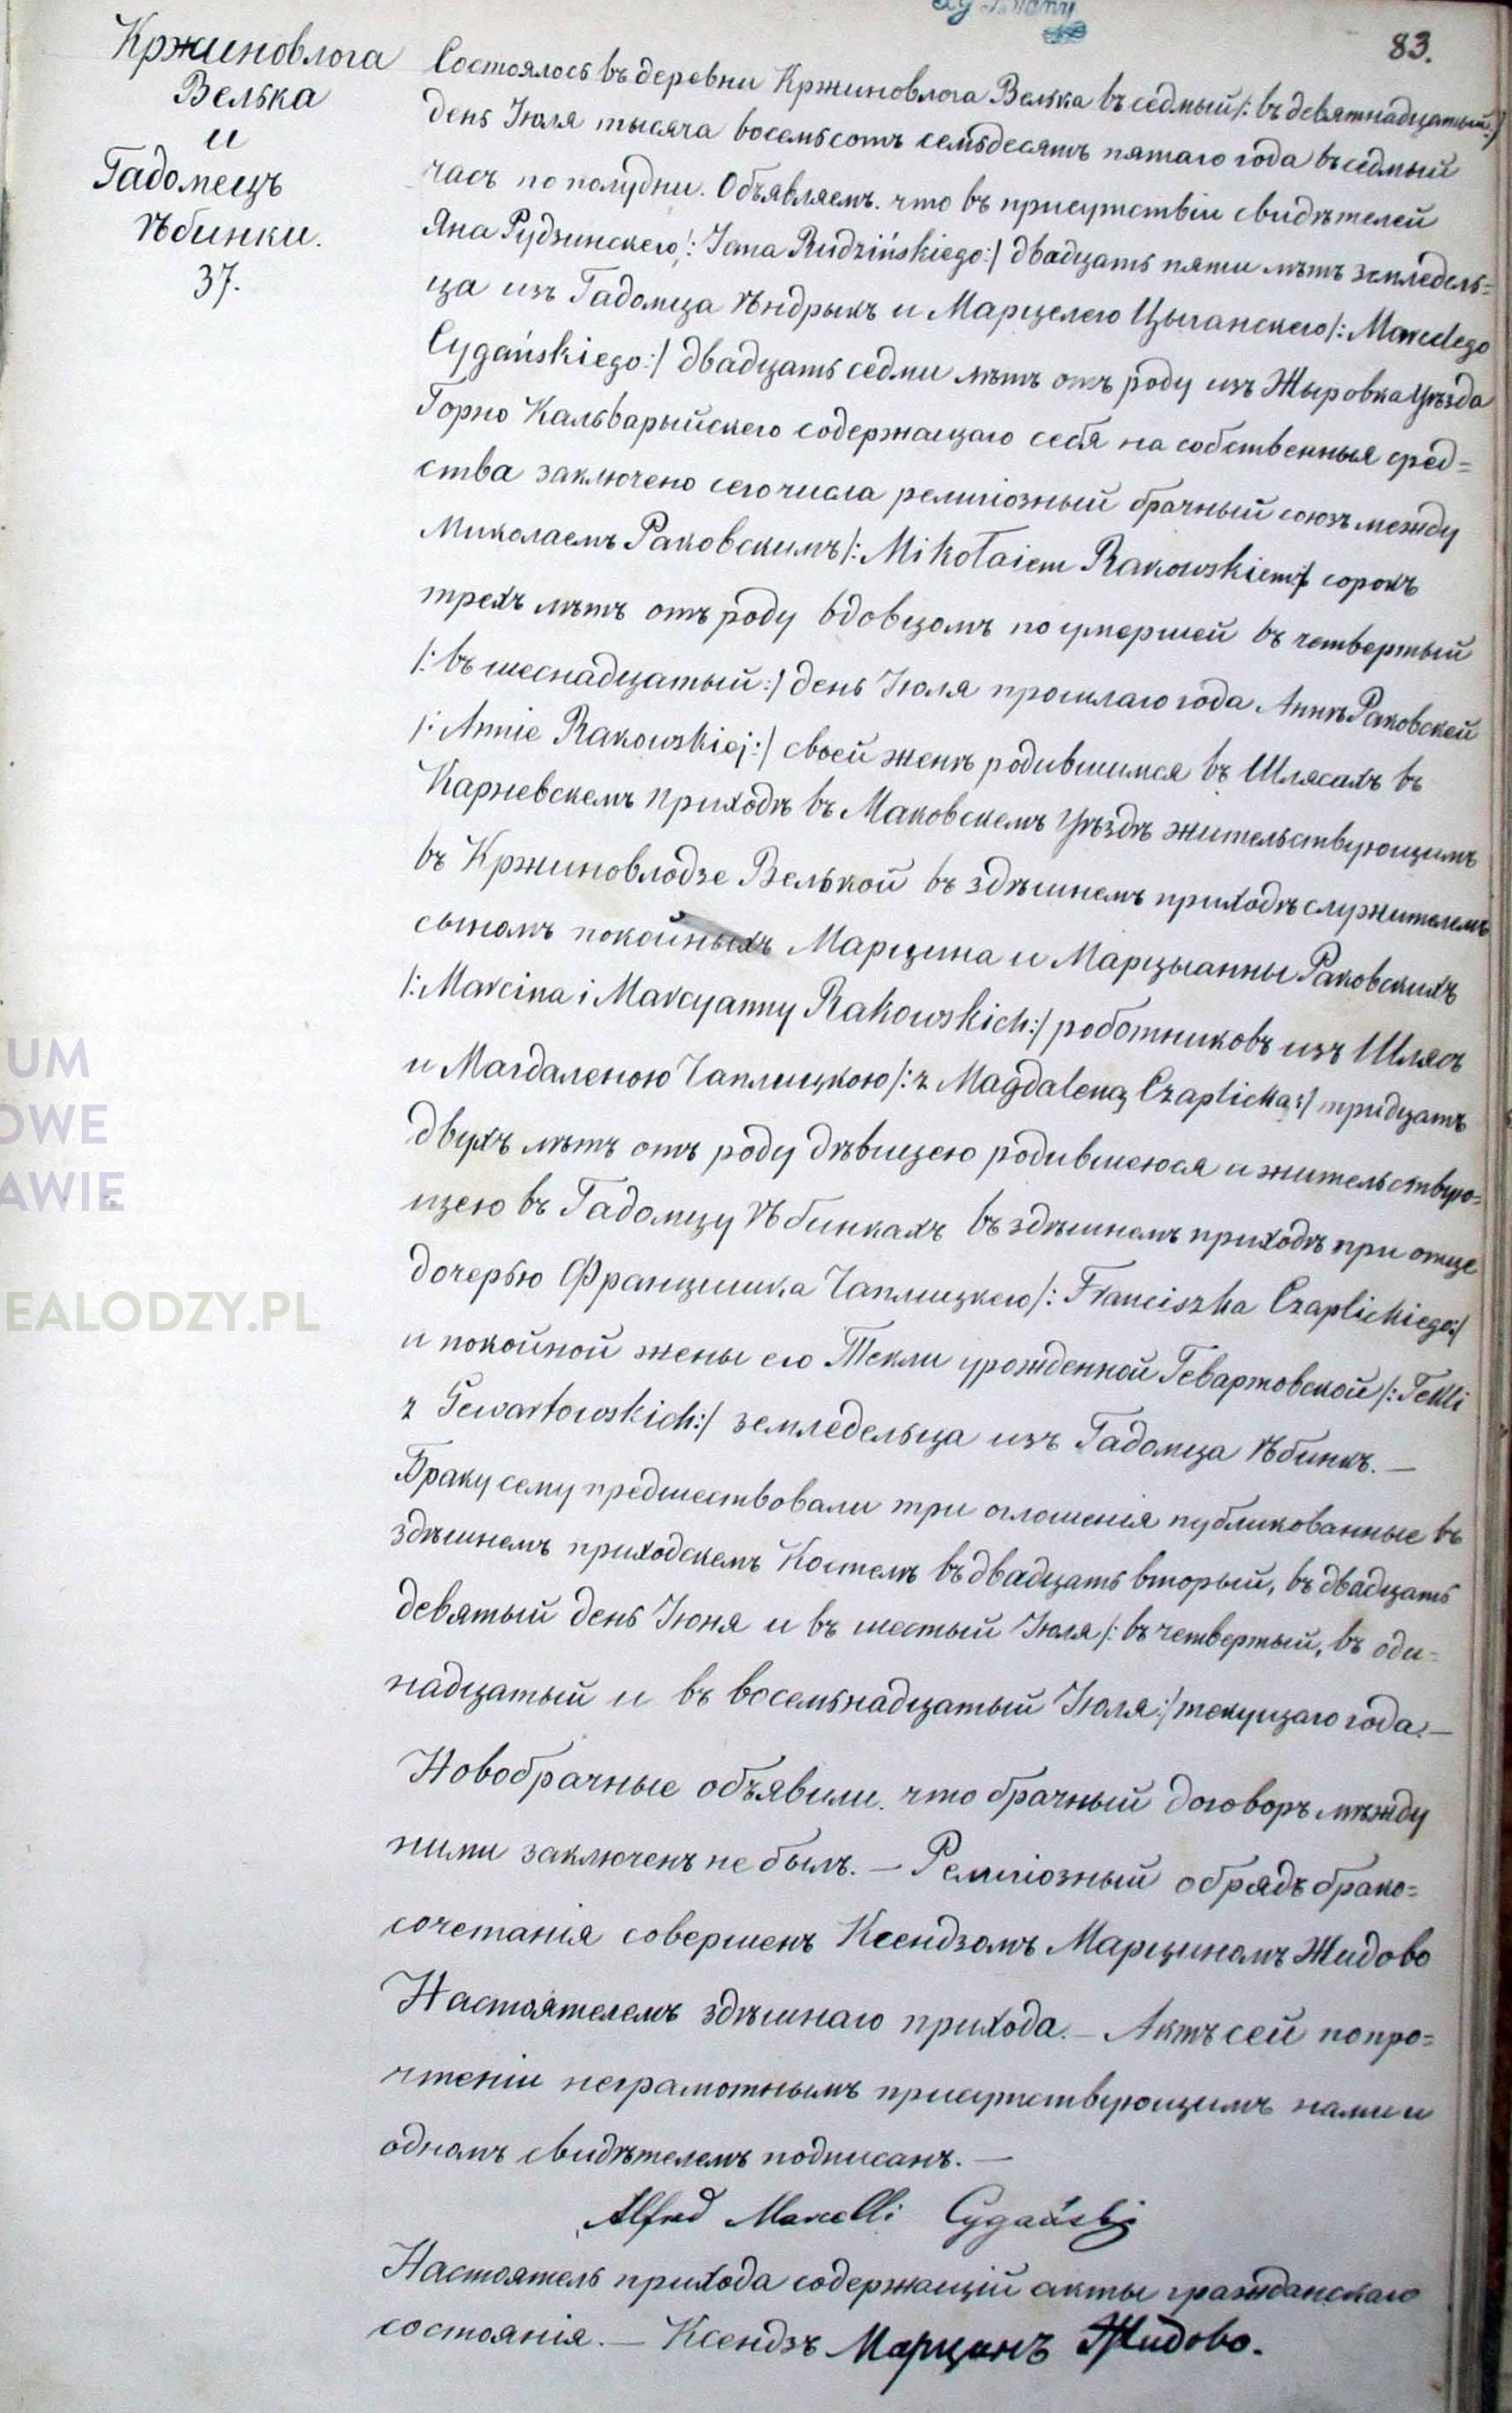 83.
Кржиновлога
Велька
и
Гадомецъ
Ѣбинки.
37.
Состоялось въ деревни Кржиновлога Велька въ седмый /: въ девятнадцатый :/
день Іюля тысяча восемьсотъ семьдесятъ пятаго года въ седмый
часъ по полудни. Объявляемъ. что въ присутствіи свидѣтелей
Яна Рудзинскего /: Jana Rudzińskiego :/ двадцать пяти лѣтъ земледель=
ца изъ Гадомца Ѣндрыхъ и Марцелего Цыганскего /: Marcelego
Cygańskiego :/ двадцать седми лѣтъ отъ роду изъ Жыровка Уѣзда
Горно Кальварыйскего содержащаго себя на собственныя сред=
ства заключено сего числа религіозный брачный союзъ между
Миколаемъ Раковскимъ /: Mikołaiem Rakowskiem :/ сорокъ
трехъ лѣтъ отъ роду вдовцомъ по умершей въ четвертый
/: въ шеснадцатый :/ день Іюля прошлаго года Аннѣ Раковской
/: Annie Rakowskiej :/ своей женѣ родившимся въ Шлясахъ въ
Карневскемъ приходѣ въ Маковскемъ Уѣздѣ жительствующимъ
въ Кржиновлодзе Велькой въ здѣшнемъ приходѣ служителемъ
сыномъ покойныхъ Марцина и Марцыанны Раковскихъ
/: Marcina i Marcyanny Rakowskich :/ роботниковъ изъ Шлясъ
и Магдаленою Чаплицкою /: z Magdaleną Czaplicką :/ тридцать
двухъ лѣтъ отъ роду дѣвицею родившеюся и жительствую=
щею въ Гадомцу Ѣбинкахъ въ здѣшнемъ приходѣ при отце
дочерью Францишка Чаплицкего /: Franciszka Czaplickiego :/
и покойной жены его Текли урожденной Гевартовской /: Tekli
z Gewartowskich :/ земледельца изъ Гадомца Ѣбинкъ. —
Браку сему предшествовали три оглошенія публикованные въ
здѣшнемъ приходскемъ Костелѣ въ двадцать вторый, въ двадцать
девятый день Іюня и въ шестый Іюля /: въ четвертый, въ оди=
надцатый и въ восемьнадцатый Іюля :/ текущаго года. —
Новобрачные объявили. что брачный договоръ мѣжду
ними заключенъ не былъ. — Религіозный обрядъ брако=
сочетанія совершенъ Ксендзомъ Марциномъ Жидово
Настоятелемъ здѣшнаго прихода. — Актъ сей по про=
чтеніи неграмотнымъ присутствующимъ нами и
одномъ свидѣтелемъ подписанъ. —
Alfred Marcelli Cygański
Настоятель прихода содержащій акты гражданскаго
состоянія. — Ксендзъ Марцинъ Жидово.
UM
OWE
AWIE
EALODZY.PL